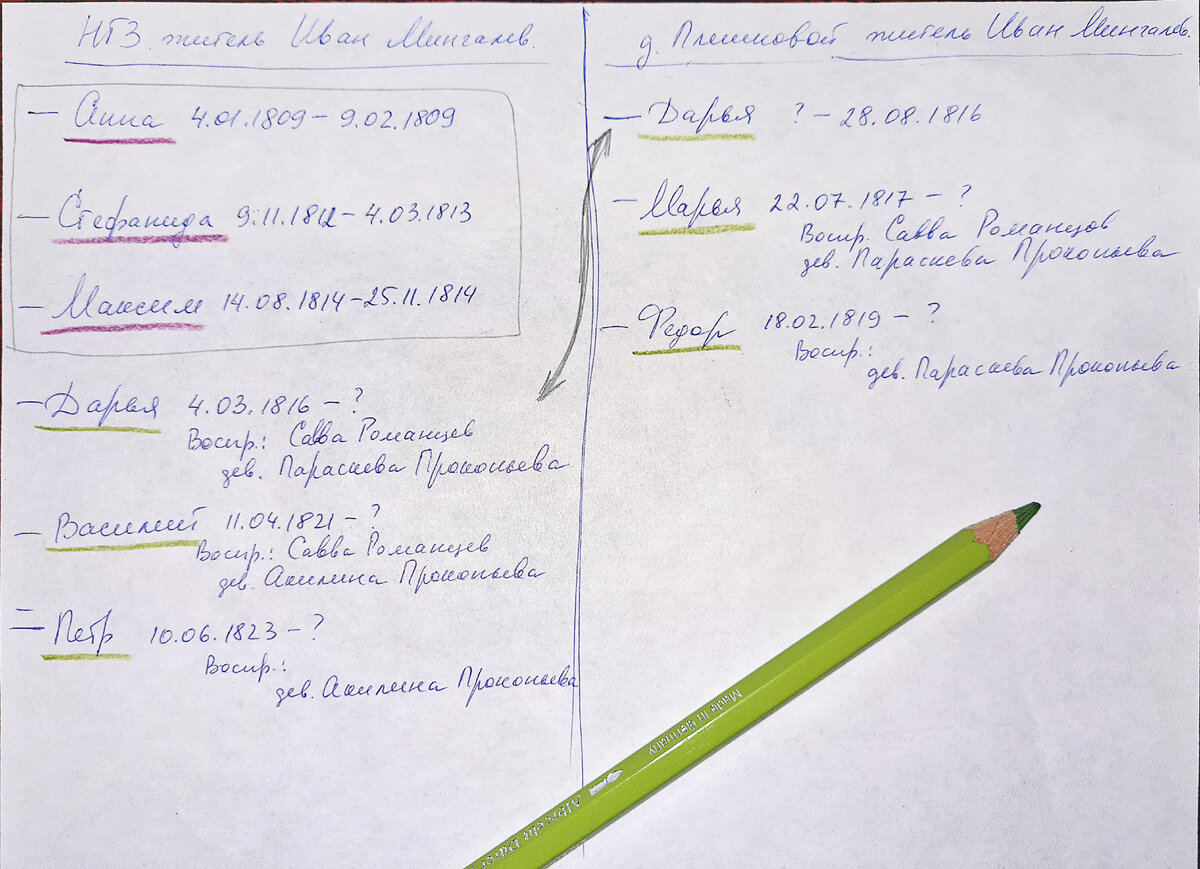 НТЗ житель Иван Мингалев.
— Анна 4.01.1809 – 9.02.1809
— Стефанида 9.11.1812 – 4.03.1813
— Максим 14.08.1814 – 25.11.1814
— Дарья 4.03.1816 – ?
Воспр.: Савва Романцев
дев. Параскева Прокопьева
— Василий 11.04.1821 – ?
Воспр.: Савва Романцев
дев. Акилина Прокопьева
— Петр 10.06.1823 – ?
Воспр.:
дев. Акилина Прокопьева
д. Плешковой житель Иван Мингалев.
— Дарья ? – 28.08.1816
— Марья 22.07.1817 – ?
Воспр. Савва Романцов
дев. Параскева Прокопьева
— Федор 18.02.1819 – ?
Воспр.:
дев. Параскева Прокопьева
Made in Germany
Albrecht Dürer